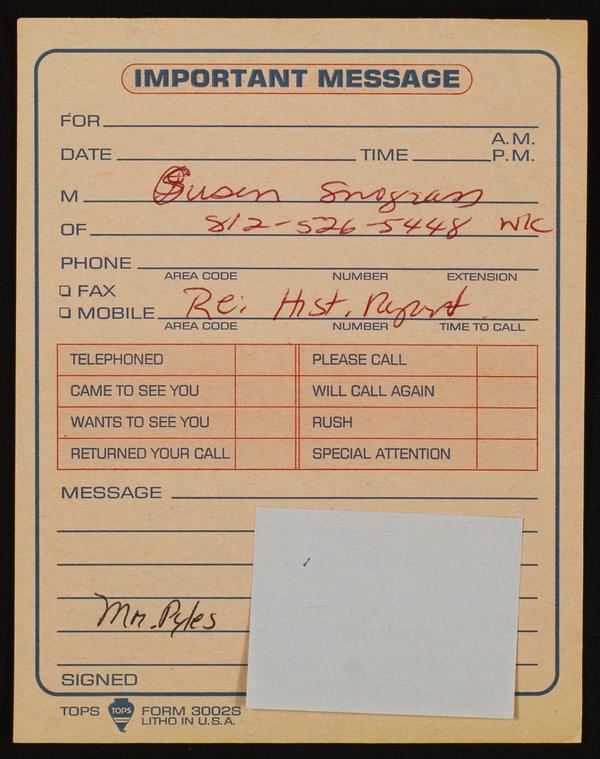 IMPORTANT MESSAGE
FOR
A.M.
DATE TIME P.M.
M Susan Snograss
OF 812-526-5448 WK
PHONE
AREA CODE NUMBER EXTENSION
FAX
MOBILE Re: Hist. Report
AREA CODE NUMBER TIME TO CALL
TELEPHONED PLEASE CALL
CAME TO SEE YOU WILL CALL AGAIN
WANTS TO SEE YOU RUSH
RETURNED YOUR CALL SPECIAL ATTENTION
MESSAGE
Mr. Pyles
SIGNED
TOPS TOPS FORM 3002S
LITHO IN U.S.A.